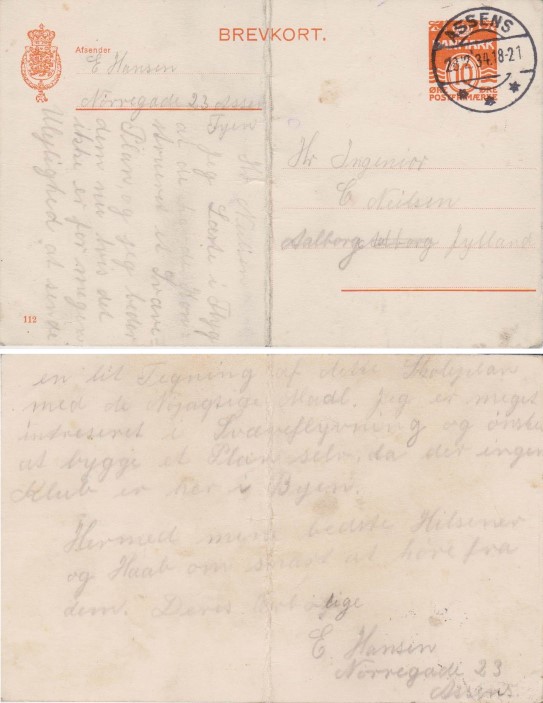 BREVKORT.
Afsender
E Hansen
Nörregade 23 Assens
Fyen
ASSENS
23.12.34.18-21
DANMARK
10
ØRE ØRE
POSTFRIMÆRKE
Hr Ingeniør
E Neilsen
Aalborg Jylland
112
Jeg Læste i Flyg
at de havde Kon-
strueret et Svæve-
Plan, og jeg beder
dem nu hvis det
ikke er for megen
Ulejlighed at sende
en lit Tegning af dette Skoleplan
med de Nøjagtige Maal. Jeg er meget
intreseret i Svæveflyvning og ønsker
at bygge et Plan selv, da der ingen
Klub er her i Byen.
Hermed mine bedste Hilsener
og Haab om snart at høre fra
dem. Deres Ærbødige
E Hansen
Nörregade 23
Assens